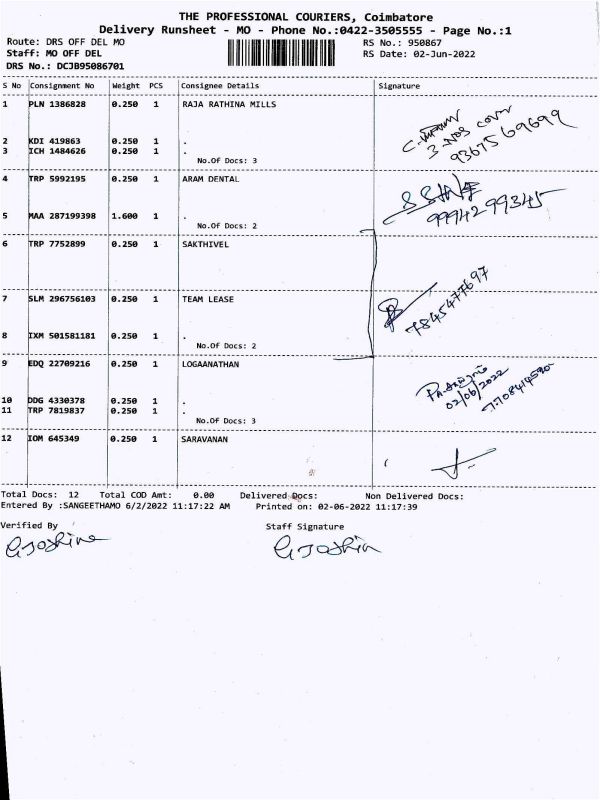 THE PROFESSIONAL COURIERS, Coimbatore
Delivery Runsheet - MO - Phone No.:0422-3505555 - Page No.:1
Route: DRS OFF DEL MO RS No.: 950867
Staff: MO OFF DEL RS Date: 02-Jun-2022
DRS No.: DCJB95086701
S No Consignment No Weight PCS Consignee Details Signature
1 PLN 1386828 0.250 1 RAJA RATHINA MILLS
3 Nos cover
9367569699
2 KDI 419863 0.250 1 .
3 ICH 1484626 0.250 1 .
No.Of Docs: 3
4 TRP 5992195 0.250 1 ARAM DENTAL
9994299345
5 MAA 287199398 1.600 1 .
No.Of Docs: 2
6 TRP 7752899 0.250 1 SAKTHIVEL
7 SLM 296756103 0.250 1 TEAM LEASE
7845477697
8 IXM 501581181 0.250 1 .
No.Of Docs: 2
9 EDQ 22709216 0.250 1 LOGAANATHAN
02/06/2022
10 DDG 4330378 0.250 1 .
11 TRP 7819837 0.250 1 .
No.Of Docs: 3
12 IOM 645349 0.250 1 SARAVANAN
Total Docs: 12 Total COD Amt: 0.00 Delivered Docs: Non Delivered Docs:
Entered By :SANGEETHAMO 6/2/2022 11:17:22 AM Printed on: 02-06-2022 11:17:39
Verified By Staff Signature